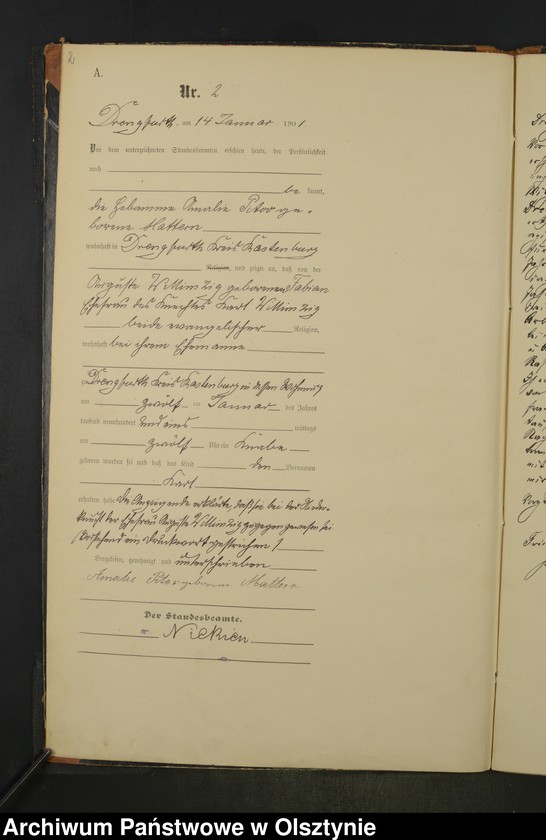 2
A.
Nr. 2
Drengfurth, am 14 Januar 1901
Vor dem unterzeichneten Standesbeamten erschien heute, der Persönlichkeit
nach
be kannt,
die Hebamme Amalie ge-
borene Mattern
wohnhaft in Drengfurth Kreis Rastenburg
Religion, und zeigte an, daß von der
Auguste geborenen Fabian
Ehefrau des Knechtes Karl
beide evangelischer Religion,
wohnhaft bei ihrem Ehemanne
in Drengfurth Kreis Rastenburg in dessen Wohnung
am zwölf ten Januar des Jahres
tausend neunhundert und eins mittags
um zwölf Uhr ein Knabe
geboren worden sei und daß das Kind den Vornamen
Karl
erhalten habe. Die Anzeigende erklärte, daß sie bei der Nieder-
kunft der Ehefrau Auguste zugegen gewesen sei
Vorstehend ein Druckwort gestrichen!
Vorgelesen, genehmigt und unterschrieben
Amalie geborene Mattern
Der Standesbeamte.
Archiwum Państwowe w Olsztynie